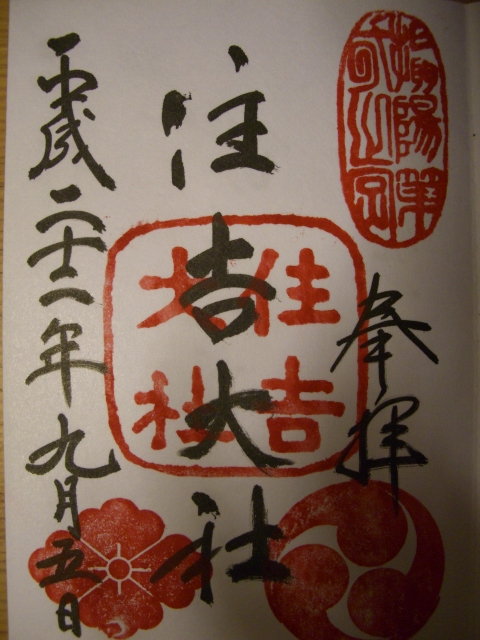 奉拝
住吉大社
住吉
大社
平成二十二年九月五日